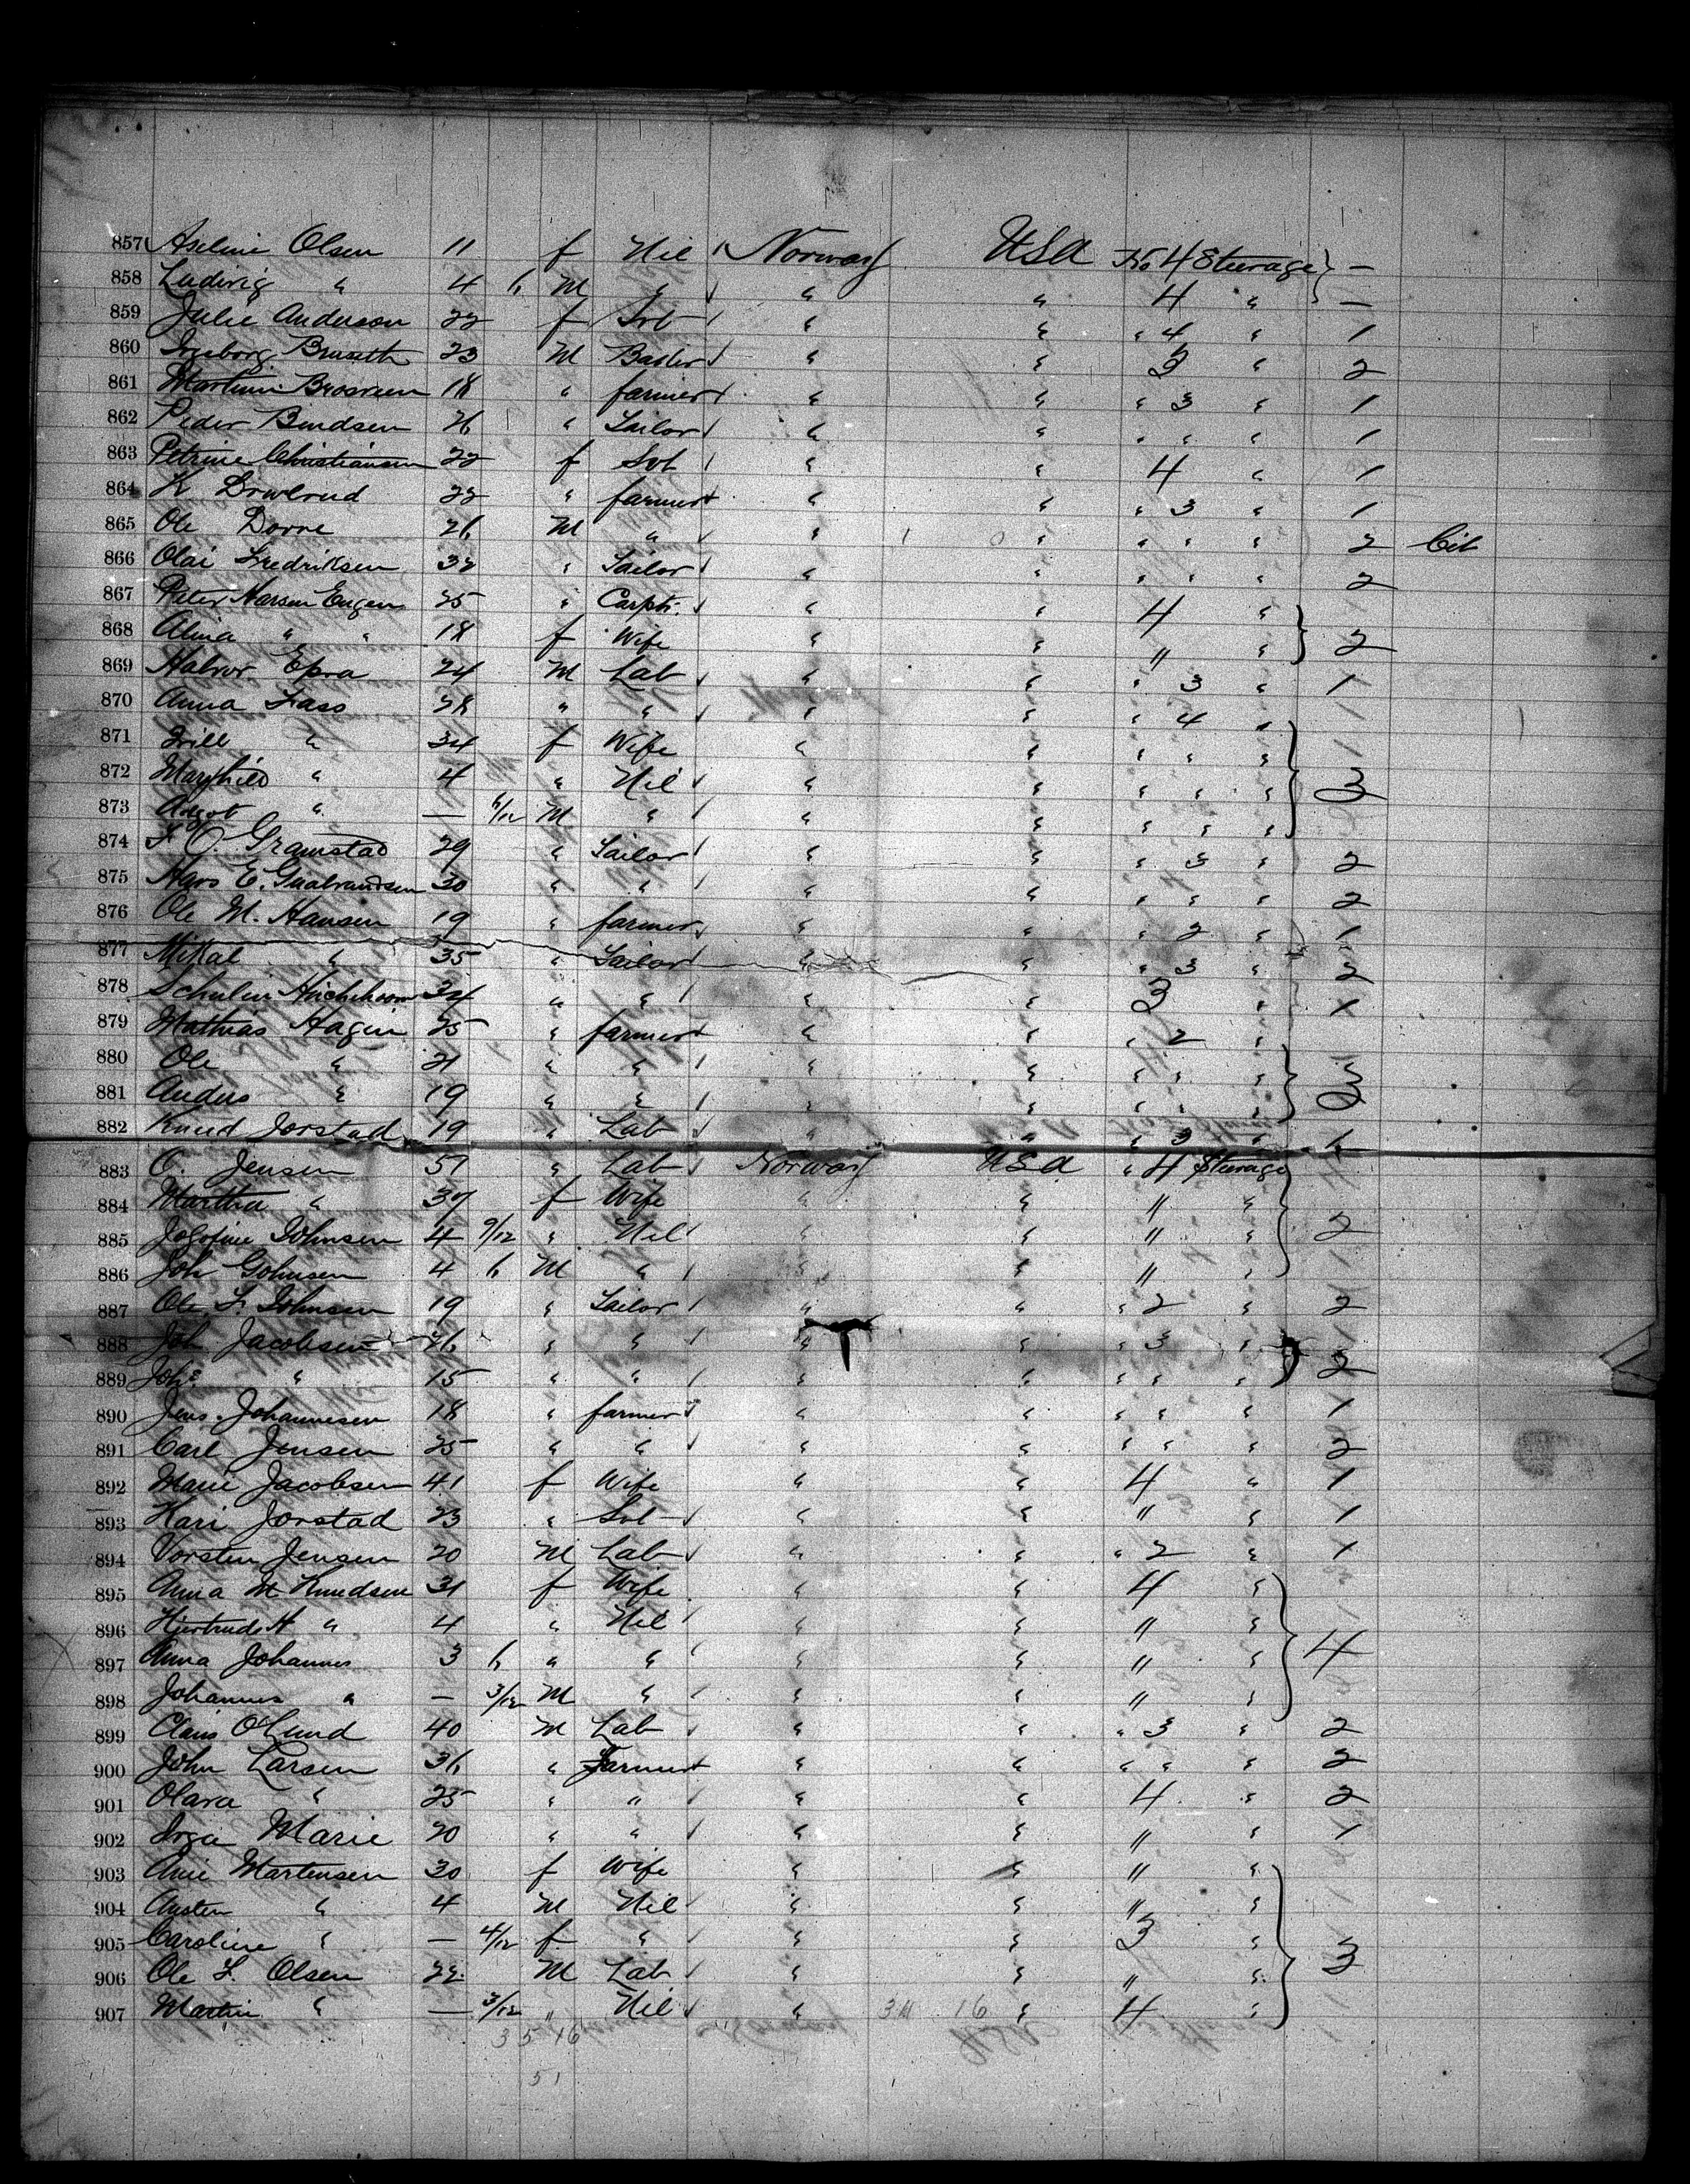 857 Aseline Olsen 11 f Nil Norway USA No 4 Steerage —
858 Ludwig " 4 6 M " " " 4 " —
859 Julie Anderson 22 f Svt " " " 4 " 1
860 Ingeborg Bruseth 23 M " " 3 " 2
861 Martinus 18 " farmer " " " 3 " 1
862 Peder Bendsen 26 " Sailor " " " " " 1
863 Petrine Christiansen 22 f Svt " " 4 " 1
864 K 22 " farmer " " " 3 " 1
865 Ole Dorre 26 M " " " " " " 2 Cit
866 Olai Fredriksen 32 " Sailor " " " " " 2
867 Peter Larsen Engen 25 " Carptr. " " 4 "
868 Alina " " 18 f Wife " " " " 2
869 Halvor Epra 24 M Lab " " " 3 " 1
870 Anna Faso 28 " " " " " 4 "
871 " 34 f Wife " " " " "
872 Maghild " 4 " Nil " " " " " 3
873 Aagot " — 6/12 M " " " " " "
874 F O. Gramstad 29 " Sailor " " " 3 " 2
875 Hans E. Gualbrandsen 30 " " " " " " " 2
876 Ole M. Hansen 19 " farmer " " " 2 " 1
877 Mikal " 35 " Sailor " " " 3 " 2
878 34 " " " " 3 "
879 Mathias Hagen 25 " farmer " " " 2 "
880 Ole " 21 " " " " " " " 3
881 Anders " 19 " " " " " " " 2
882 Knud Jorstad 19 " Lab " " " 3 " 1
883 O. Jensen 51 " Lab Norway USA " 4 Steerage
884 Martha " 37 f Wife " " " "
885 Josefine Johnsen 4 9/12 " Nil " " " " 2
886 Joh Johnsen 4 6 M " " " " "
887 Ole F. Johnsen 19 " Sailor " " " 2 " 2
888 Joh Jacobsen 26 " " " " " 3 "
889 Johs " 15 " " " " " " " 2
890 Jens Johannesen 18 " farmer " " " " " 1
891 Carl Jensen 25 " " " " " " " 2
892 Marie Jacobsen 41 f Wife " " 4 " 1
893 Kari Jorstad 23 " Svt " " " " 1
894 Vorsten Jensen 20 M Lab " " " 2 " 1
895 Anna M Knudsen 31 f Wife " " 4 "
896 Hjertrud H " 4 " Nil " " " "
897 Anna Johannes 3 6 " " " " " " 4
898 Johannes " — 3/12 M " " " " "
899 Claus O Lund 40 M Lab " " " 3 " 2
900 John Larsen 36 " Farmer " " " " " 2
901 Olava " 25 " " " " 4 " 2
902 Inga Marie 20 " " " " " " 1
903 Anie Martensen 30 f Wife " " " "
904 Austen " 4 M Nil " " " "
905 Caroline " — 4/12 f " " " 3 "
906 Ole L. Olsen 22 M Lab " " " " 3
907 Martin " — 3/12 " Nil " 34 16 " 4 "
35 16
51